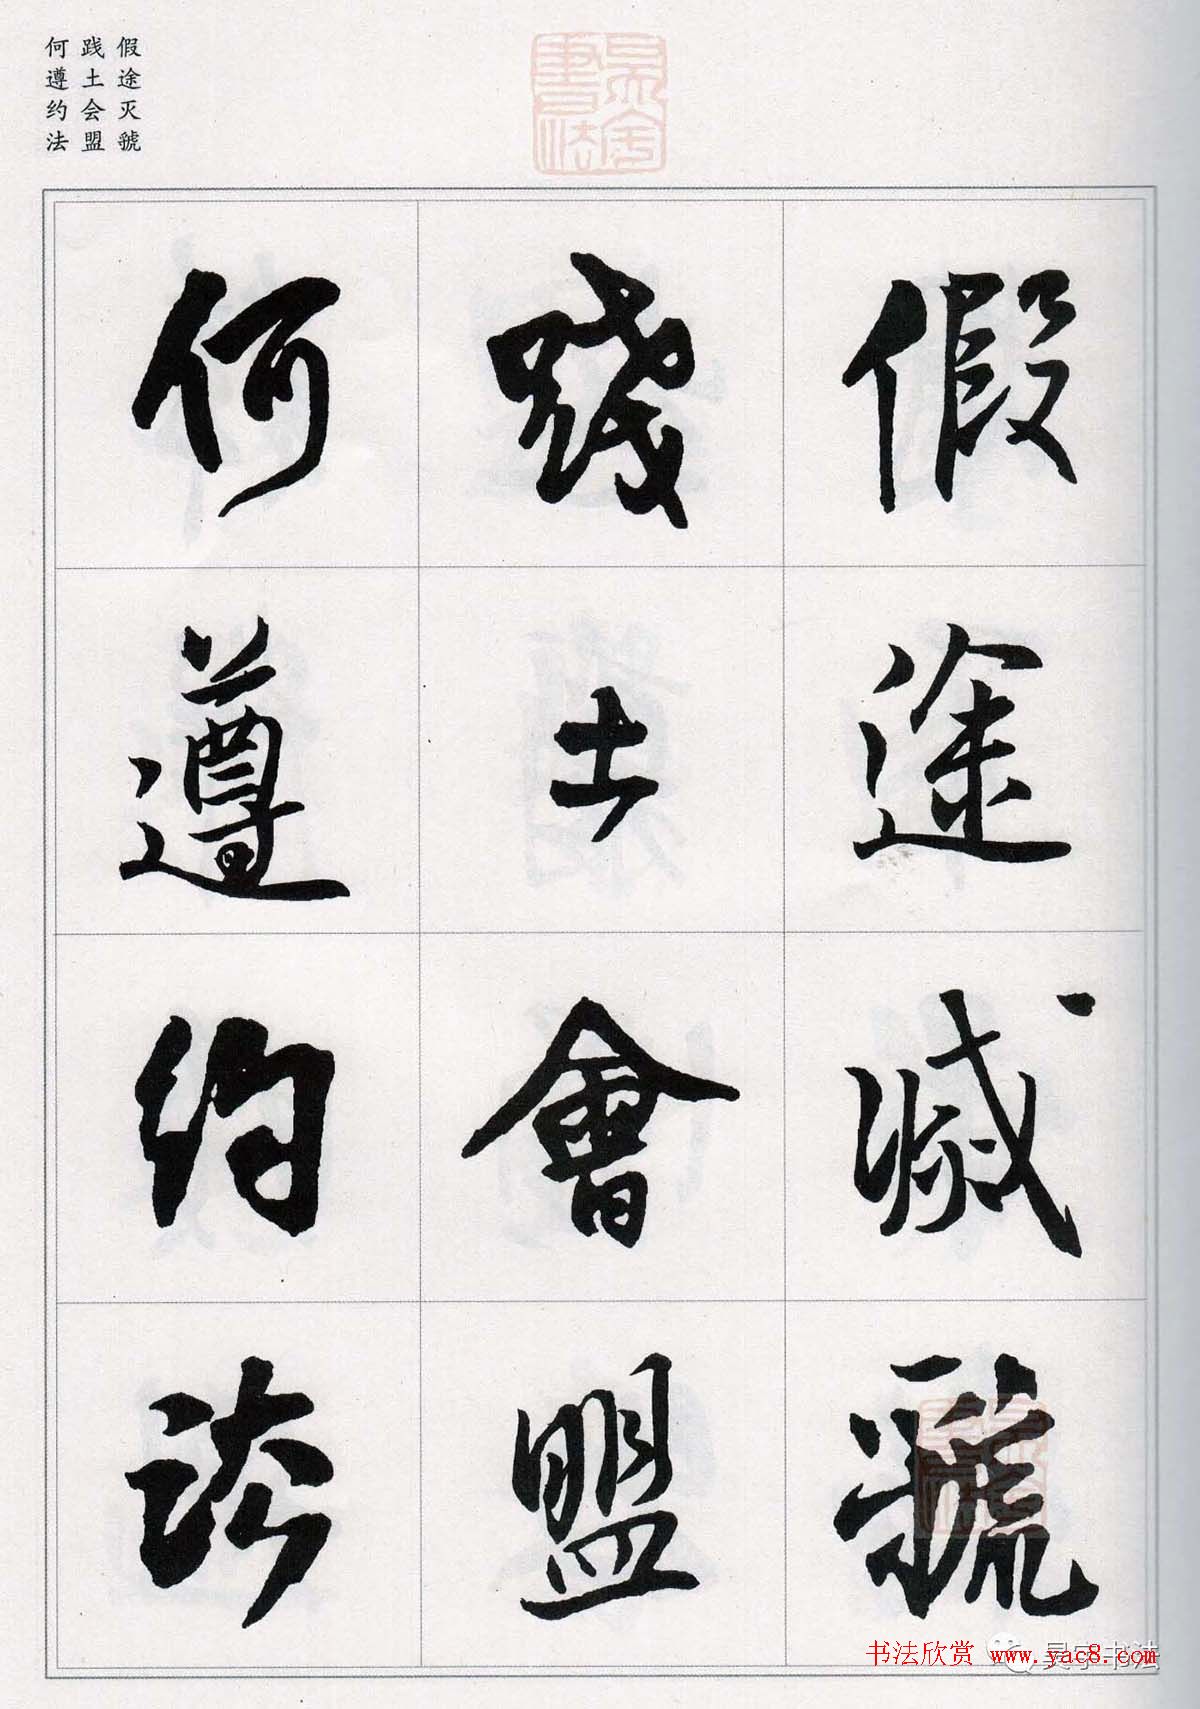 假途灭虢
践土会盟
何遵约法
假途滅虢
踐土會盟
何遵約法
书法欣赏 www.yac8.com
昊宇书法